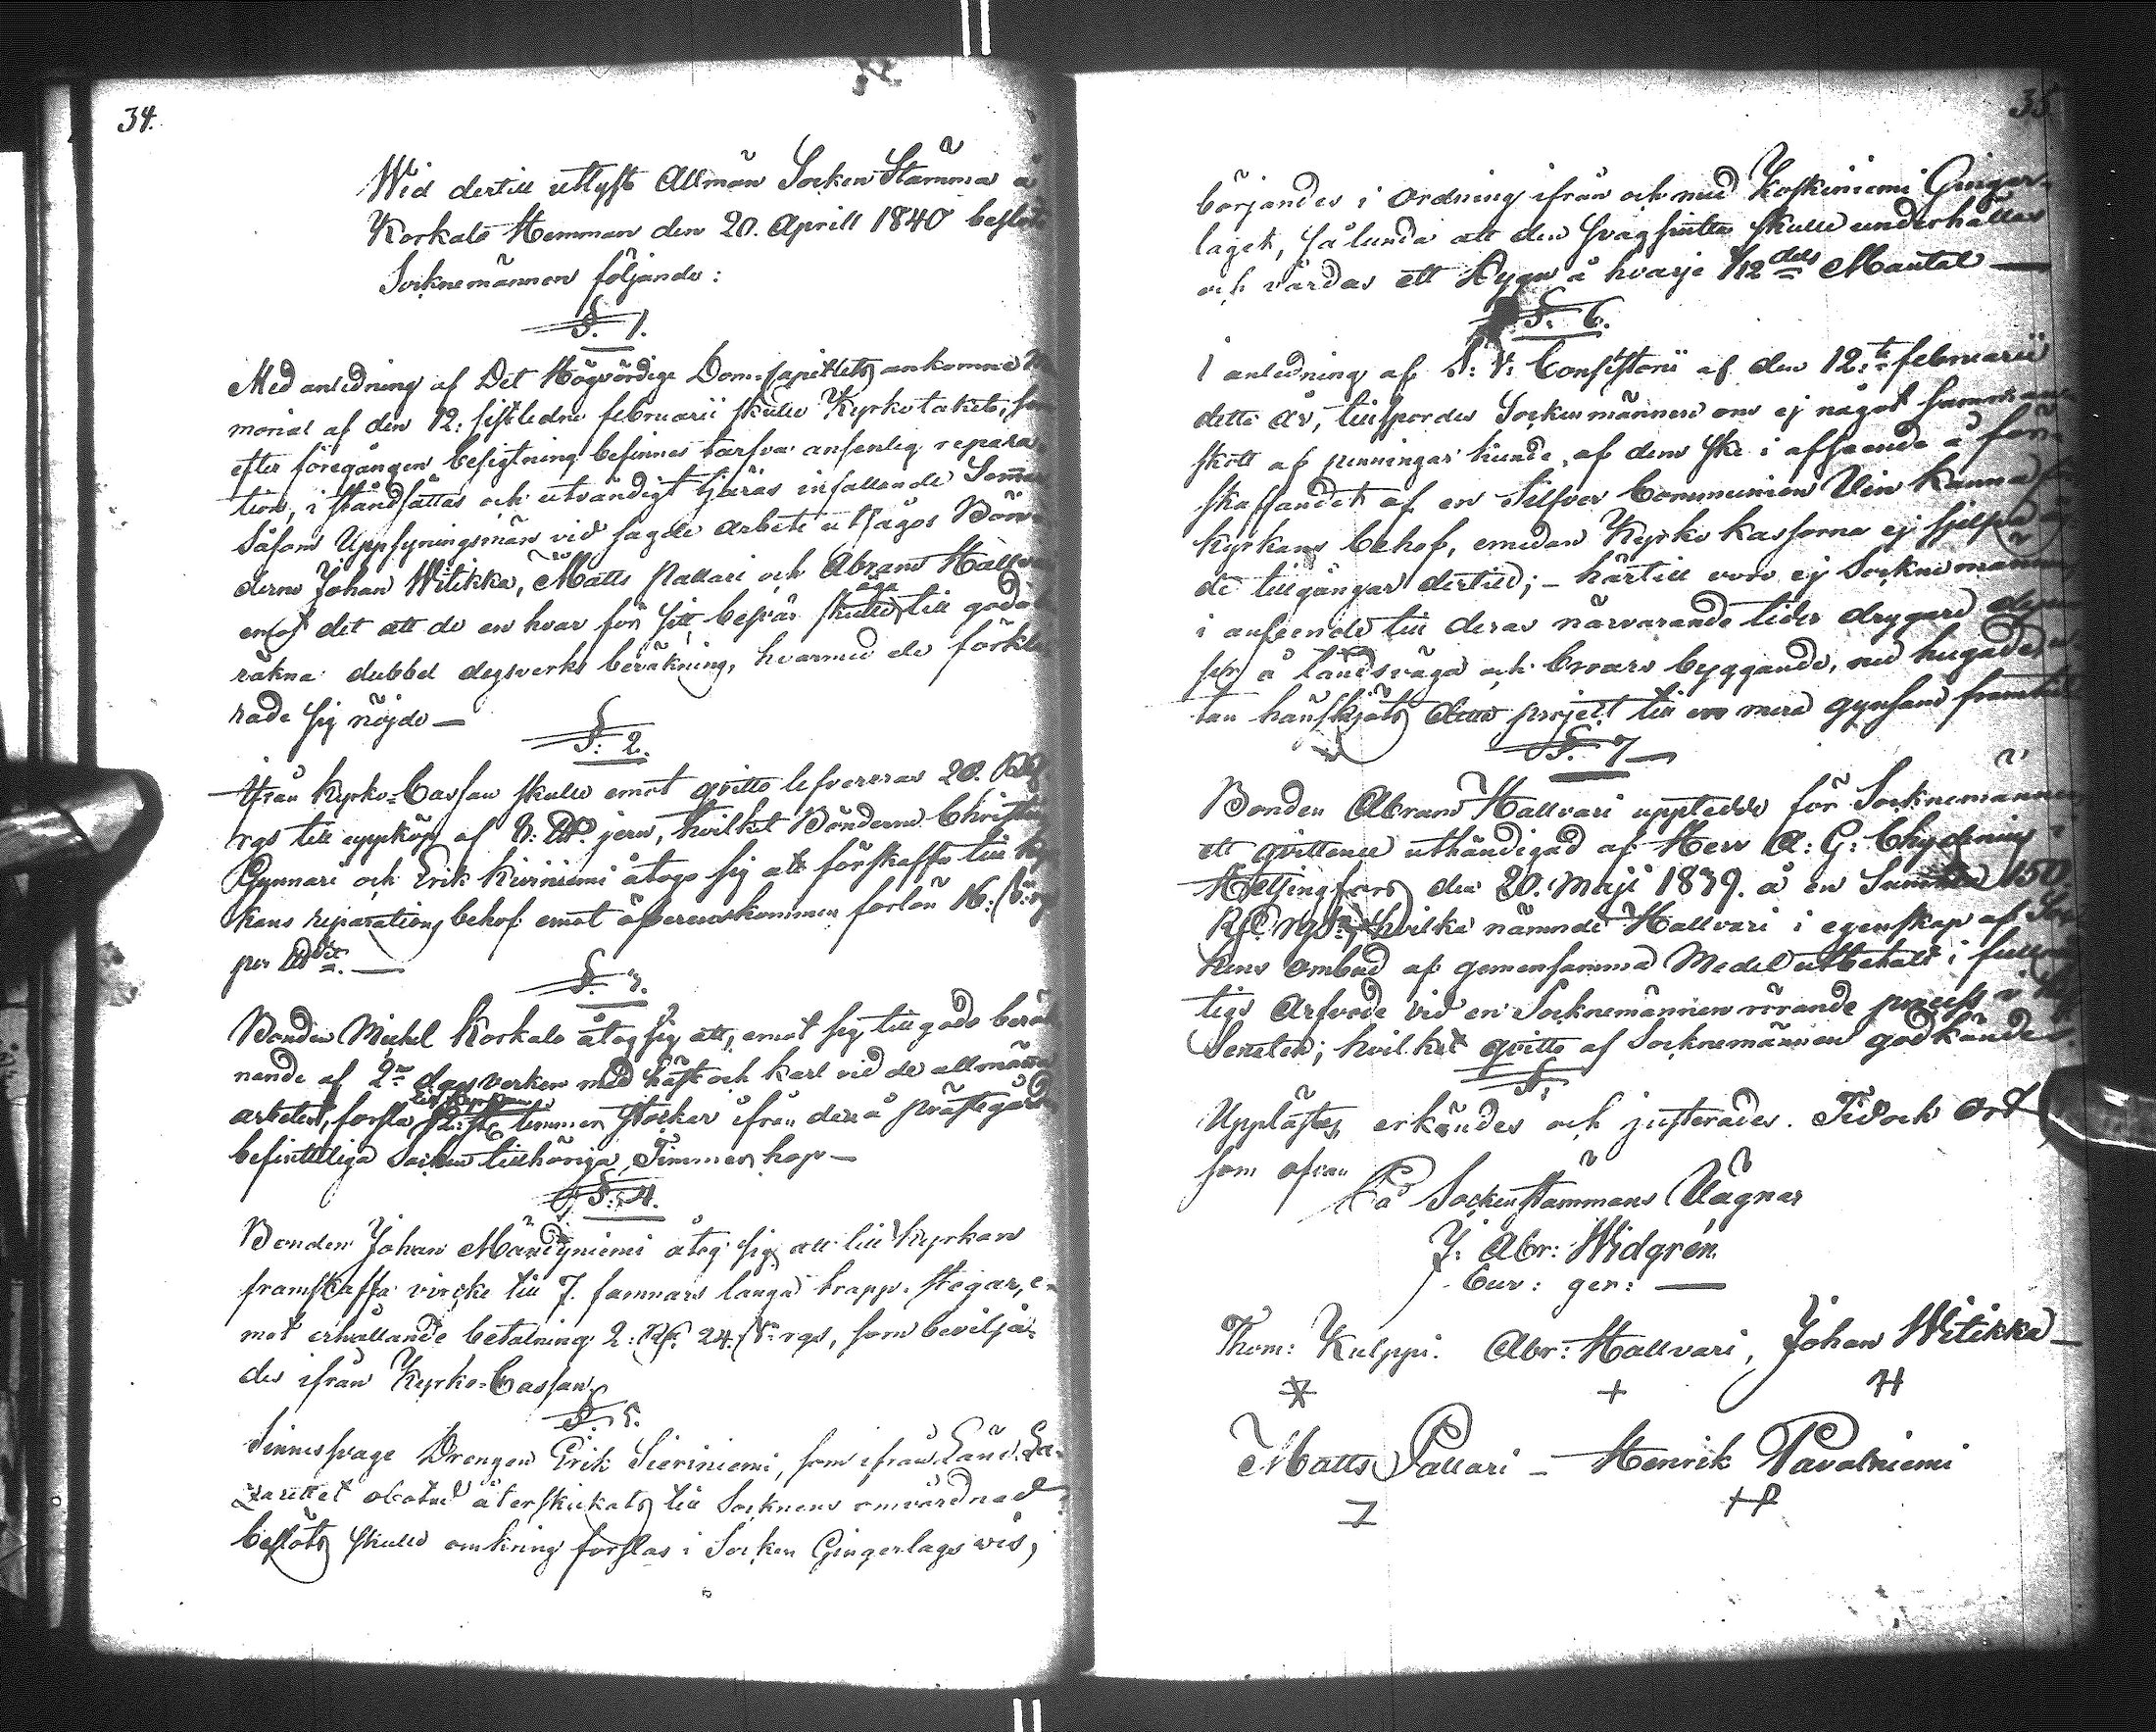 34.
Wid dertill utlyst Allmän Socken Stämma å
Korkalo Hemman den 20. Aprill 1840 beslöto
Socknemännen följande:
§. 1.
Med anledning af Det Högvördige Dom-Capitlets ankomne Me-
morial af den 12: sistledne februarii skulle Kyrkotaket, som
efter föregången besigtning befinnes tarfva ansenlig repara-
tion, i ståndsättas och utvändigt tjäras infallande Sommar
Såsom Uppsyningsmän vid sagde arbete utsågos Bön-
derne Johan Witikka, Matts Pallari och Abram Hallvari
emot det att de en hvar för sitt besvär skulle äga till godo
räkna dubbel dagsverks beräkning, hvarmed de förkla-
rade sig nöjde —
§. 2.
Ifrån Kyrko-Cassan skulle emot qvitto lefvereras 20. Rbl
rgs till uppköp af 8. LU. jern, hvilket Bönderne Christian
Gynnari och Erik Kiviniemi åtogo sig att förskaffa till kyr-
kans reparations behof emot öfverenskommen forlön 16:
per LU. —
§. 3.
Bonden Michel Korkalo åtog sig att, emot sig till godo beräk-
nande af 2ne dagsverken med häst och karl vid de allmänna
arbeten, forsla till Kyrkan timmer stockar ifrån den å prästegården
befintteliga Socken tillhöriga Timmer hop —
§. 4.
Bonden Johan Mändyniemi åtog sig att till Kyrkan
framskaffa virke till 7. famnars långa trapp-stegar, e-
mot erhållande betalning 2: Rf. 24. rgs, som beviljа-
des ifrån Kyrko-Cassan.
§. 5.
Sinnessvage Drengen Erik Sieriniemi, som ifrån Länd. La-
zarettet obotad återskickats till Socknens omvårdnad
beslöts skulle omkring forslas i Socken Gingerlags vis,
35
börjandes i Ordning ifrån och med Koskiniemi Ginger-
laget, sålunda att den svagsinta skulle underhållas
och vårdas ett dygn å hvarje 1/12 dels Mantal —
§. 6.
I anledning af S: V: Consistorii af den 12:te februarii
detta år, tillspordes Sockenmännen om ej något samman-
skott af penningar kunde af dem ske i afseende å för-
skaffandet af en Silfver Communion Vin Kanna för
Kyrkans behof, emedan Kyrko kassorna ej sjelfva äg-
de tillgångar dertill; – härtill voro ej Sockne männen
i anseende till deras närvarande tider drygare depen-
ser å landsväga och broars byggande, nu hugade, u-
tan hänskjöts detta project till en mera gynsam framtid
§. 7
Bonden Abram Hallvari upptedde för Socknemännen
ett qvittence uthändigad af Herr A: G: Chydenius i
Helsingfors den 20. Maji 1839. å en Summa 150
Rbl rgs, hvilka nämnde Hallvari i egenskap af Sock-
nens Ombud af gemensamma Medel utbetalt i fullmäk-
tigs Arfvode vid en Socknemännen rörande process i
Senaten; hvilket qvitto af Socknemännen godkändes.
§.
Upplästes, erkändes och justerades. Tid och Ort
som ofvan
På Sockenstämmans Vägnar
J: Abr: Widgrén
Cur: ger: —
Thom: Kulppi. Abr: Hallvari, Johan Witikka —
Matts Pallari – Henrik Pavalniemi